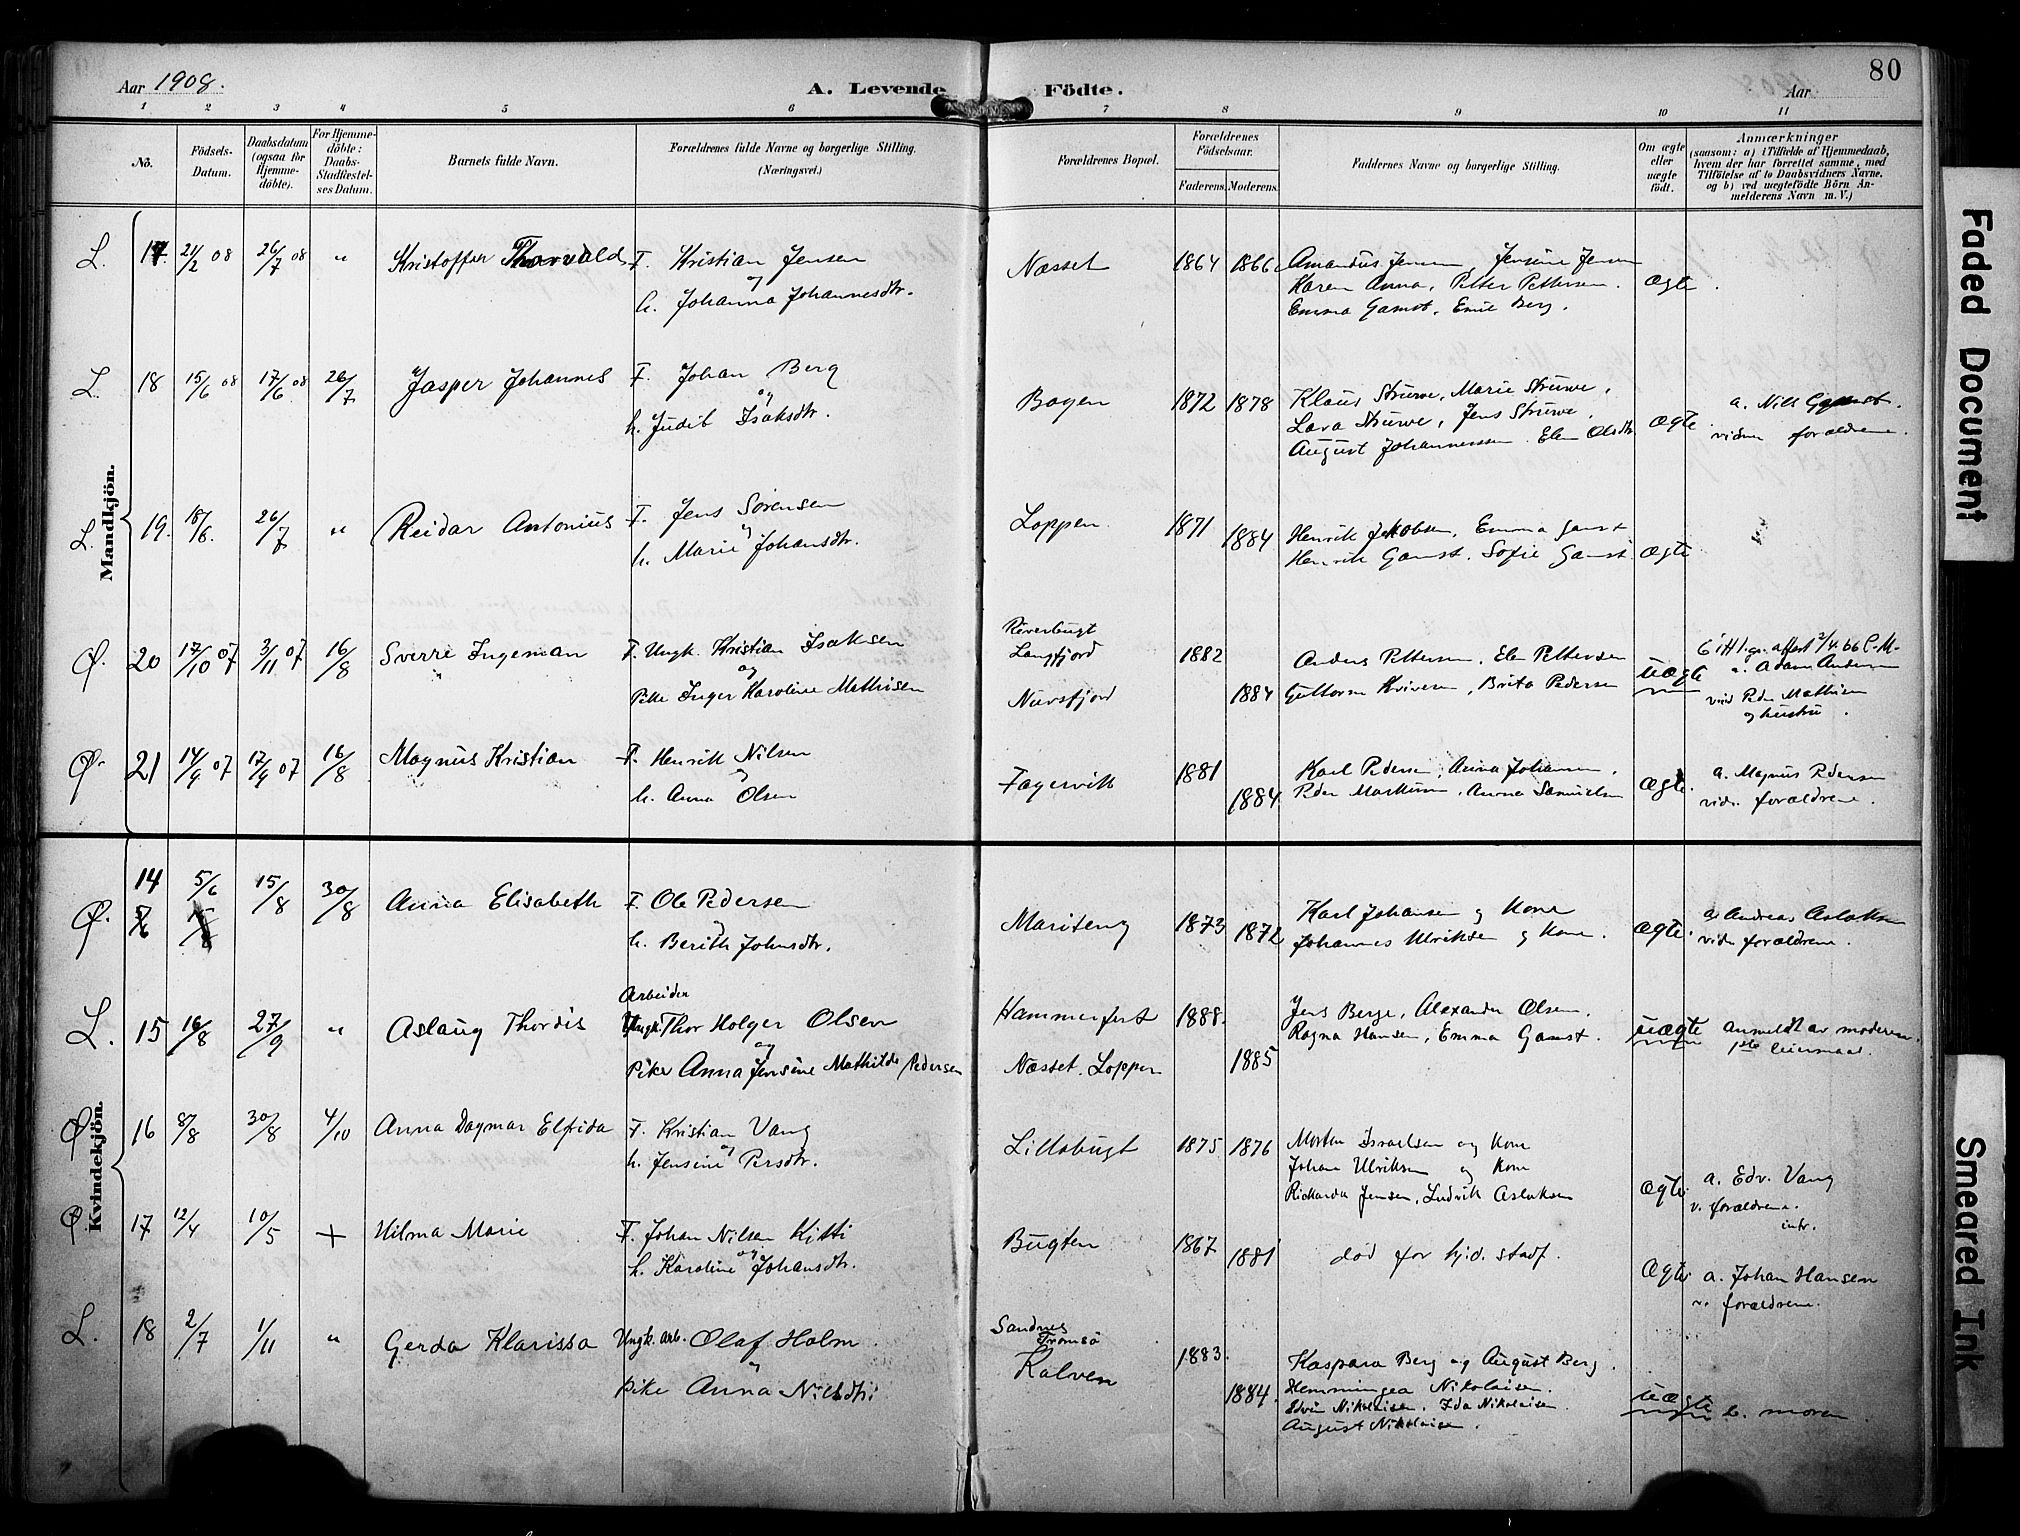 Aar 1908.
A. Levende Födte.
80
Aar
1 2 3 4 5 6 7 8 9 10 11
No.
Födsels-Datum.
Daabsdatum (ogsaa for Hjemme-döbte).
For Hjemme-döbte: Daabs-Stadfæstel-ses Datum.
Barnets fulde Navn.
Forældrenes fulde Navne og borgerlige Stilling.
(Næringsvei.)
Forældrenes Bopæl.
Forældrenes Födselsaar.
Faderens. Moderens.
Faddernes Navne og borgerlige Stilling.
Om ægte eller uægte födt.
Anmærkninger
(saasom: a) i Tilfælde af Hjemmedaab,
hvem der har forrettet samme, med
Tilföielse af to Daabsvidners Navne.
og b) ved uægtefödte Börn An-
melderens Navn m. V.)
Mandkjön.
L. 17. 21/2 08 26/7 08 " Kristoffer Thorvald F. Kristian Jensen
og
h. Johanna Johannesdtr.
Næsset 1864 1866 Amandus Jensen Jensine Jensen
Karen Anna, Petter Pettersen.
Emma Gamst. Emil Berg.
ægte
L. 18 15/6 08 17/6 08 26/7 Jasper Johannes F. Johan Berg
og
h. Judit Isaksdtr.
Bogen 1872 1878 Klaus Struwe, Marie Struwe,
Lava Struwe, Jens Struwe.
August Johannessen. Elen Olsdtr
ægte
a. Nils Gamst.
vidner forældrene.
L. 19. 18/6. 26/7 " Reidar Antonius F. Jens Sörensen
og
h. Marie Johansdtr.
Loppen. 1871 1884 Henrik Jakobsen, Emma Gamst
Henrik Gamst. Sofie Gamst
ægte
Ø. 20 17/10 07 3/11 07 16/8 Sverre Ingeman F. Ungk. Kristian Isaksen
og
Pike Inger Karoline Mathisen
Langfjord
Nuvsfjord
1882 1884
Anders Pettersen, Elen Pettersen
Guttorm Kvivesen, Brita Pedersen
uægte
a. Adam Andersen
vid Peder Mathisen
og hustru.
Ø. 21 14/9 07 17/9 07 16/8 Magnus Kristian F. Henrik Nilsen
og
h. Anna Olsen
Fagervik 1881 1884 Karl Pedersen, Anna Johansen,
Peder Markussen, Anna Samuelsen
ægte.
a. Magnus Pedersen
vidn. forældrene.
Kvindekjön.
Ø. 14 5/6 15/8 30/8 Anna Elisabeth F. Ole Pedersen
og
h. Berith Johnsdtr.
Mariteng 1873 1872 Karl Johansen og Kone
Johannes Ulriksen og Kone.
ægte.
a. Andreas Aslaksen
vidn forældrene.
L. 15 16/8 27/9 " Aslaug Thordis
Arbeider
Ungk. Thor Holger Olsen
og
Pike Anna Jensine Mathilde Pedersen
Hammerfest 1888.
Næsset. Loppen 1885
Jens Berge, Alexander Olsen.
Ragna Hansen, Emma Gamst.
uægte
anmeldt av moderen.
1ste leiermaal.
Ø 16 8/8 30/8 4/10 Anna Dagmar Elfrida F. Kristian Vang
og
h. Jensine Persdtr.
Lillebugt 1875 1876 Morten Israelsen og Kone
Johan Ulriksen og Kone
Rickarda Jensen, Ludvik Aslaksen
ægte
a. Edv. Vang
v. forældrene.
intr.
Ø 17 12/4 10/5 + Hilma Marie F. Johan Nilsen Kitti
og
h. Karoline Johansdtr.
Bugten 1867 1881 död for hj.d. stadf.
ægte
a. Johan Hansen
v. forældrene.
L. 18 2/7 1/11 " Gerda Klarissa Ungk. arb. Olaf Holm
og
pike Anna Nilsdtr.
Sandnes
Tromsö
Kalven
1883. 1884.
Kaspara Berg og August Berg.
Hemmingea Nikolaisen.
Edvin Nikolaisen. Ida Nikolaisen
August Nikolaisen.
uægte
b. moren
Faded Document
Smeared Ink